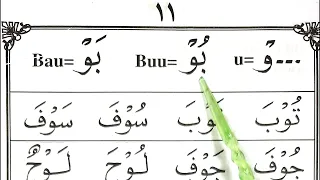 ١١
...وْ =u بُوْ =Buu بَوْ =Bau
تُوْبَ تَوْبَ سُوْفَ سَوْفَ
جُوْفَ جَوْفَ لُوْحَ لَوْحٌ